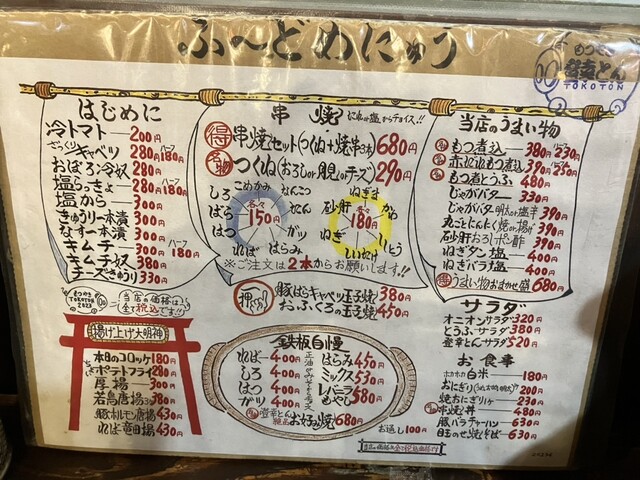 ふ〜どめにゅう
登幸とん
TOKOTON
はじめに
冷トマト 200円
ざっくりキャベツ 280円 ハーフ180円
おぼろ冷奴 280円
塩らっきょ 280円 ハーフ180円
塩から 300円
きゅうり一本漬 300円
なす一本漬 300円
キムチ 300円 ハーフ180円
キムチ奴 380円
チーズきゅうり 330円
TOKOTON
2023
当店の価格は
全て税込です!!
串焼 たれor塩からチョイス!!
得 串焼セット(つくね+焼串3本) 680円
名物 つくね(おろしor月見orチーズ) 290円
こめかみ
なんこつ
しろ
たん
ばら
ガツ
はつ
はらみ
れば
各々150円
ねぎま
砂肝
かわ
ねぎ
ししとう
しいたけ
各々180円
※ご注文は2本からお願いします!!
豚ばらキャベツ玉子焼 380円
おふくろの玉子焼 450円
当店のうまい物
もつ煮込 380円 ハーフ230円
赤もつ煮込 390円 ハーフ250円
もつ煮とうふ 480円
じゃがバター 330円
じゃがバター明太or塩辛 390円
丸ごとにんにく焼or揚げ 390円
砂肝おろしポン酢 390円
ねぎタン塩 400円
ねぎバラ塩 400円
得 うまい物おまかせ盛 680円
サラダ
オニオンサラダ 320円
とうふサラダ 380円
登幸とんサラダ 520円
お食事
ホカホカ白米 180円
おにぎり 200円
焼おにぎり 230円
串焼丼 480円
豚バラチャーハン 630円
目玉のせ焼そば 630円
揚げ上げ大明神
本日のコロッケ 180円
ポテトフライ 280円
厚揚 300円
若鳥唐揚 380円
豚ホルモン唐揚 430円
れば竜田揚 430円
鉄板自慢
ればー 400円
しろ 400円
はつ 400円
ガツ 400円
はらみ 450円
ミックス 530円
レバニラ 580円
もやし 580円
お好み焼 680円
お通し 100円